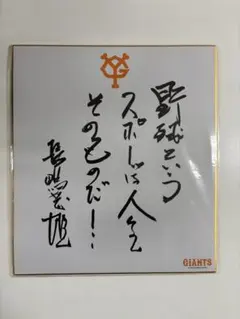 野球という
スポーツは人生
そのものだ!!
長嶋茂雄
YG
GIANTS